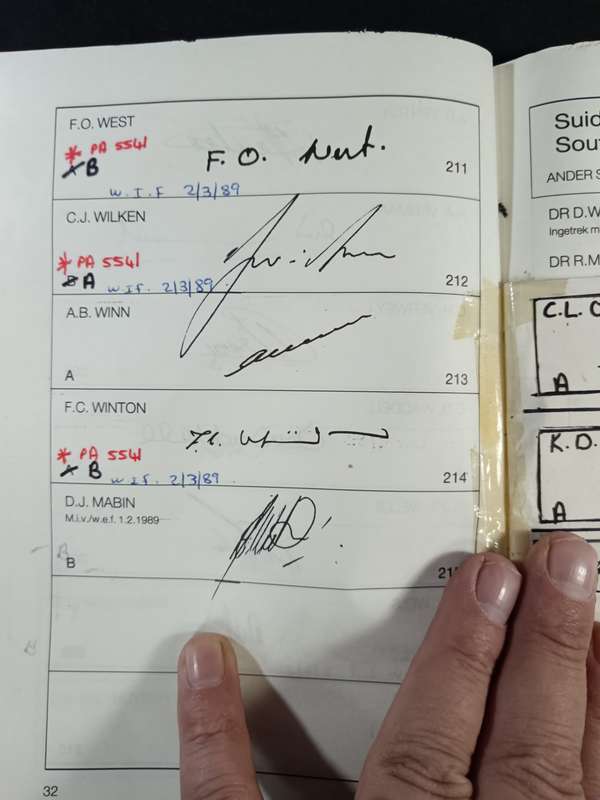 F.O. WEST
* PA 5541
B
F. O. West.
211
W.I.F 2/3/89
C.J. WILKEN
* PA 5541
A
W.I.F. 2/3/89
212
A.B. WINN
A
213
F.C. WINTON
* PA 5541
B
W.I.F. 2/3/89
214
D.J. MABIN
M.i.v./w.e.f. 1.2.1989
B
32
Suid
Sout
ANDER S
DR D.W
Ingetrek m
DR R.M
C.L. C
A
K.D.
A